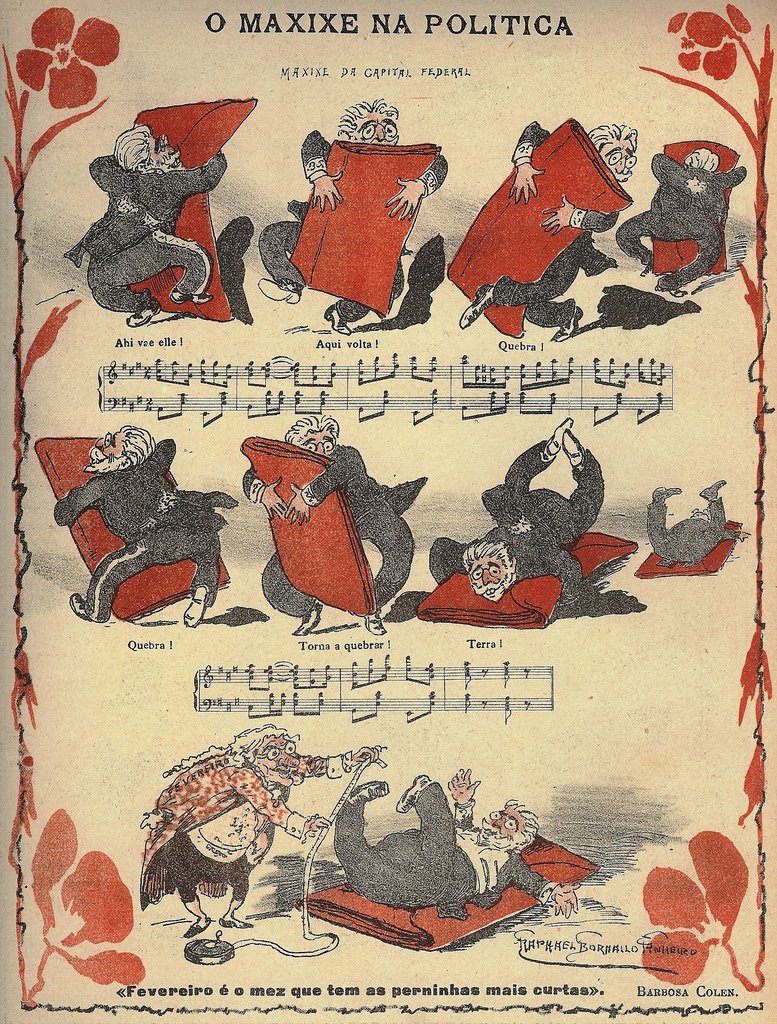 O MAXIXE NA POLITICA
MAXIXE DA CAPITAL FEDERAL
Ahi vae elle !
Aqui volta !
Quebra !
Quebra !
Torna a quebrar !
Terra !
FEVEREIRO
RAPHAEL BORDALLO PINHEIRO
«Fevereiro é o mez que tem as perninhas mais curtas».
BARBOSA COLEN.